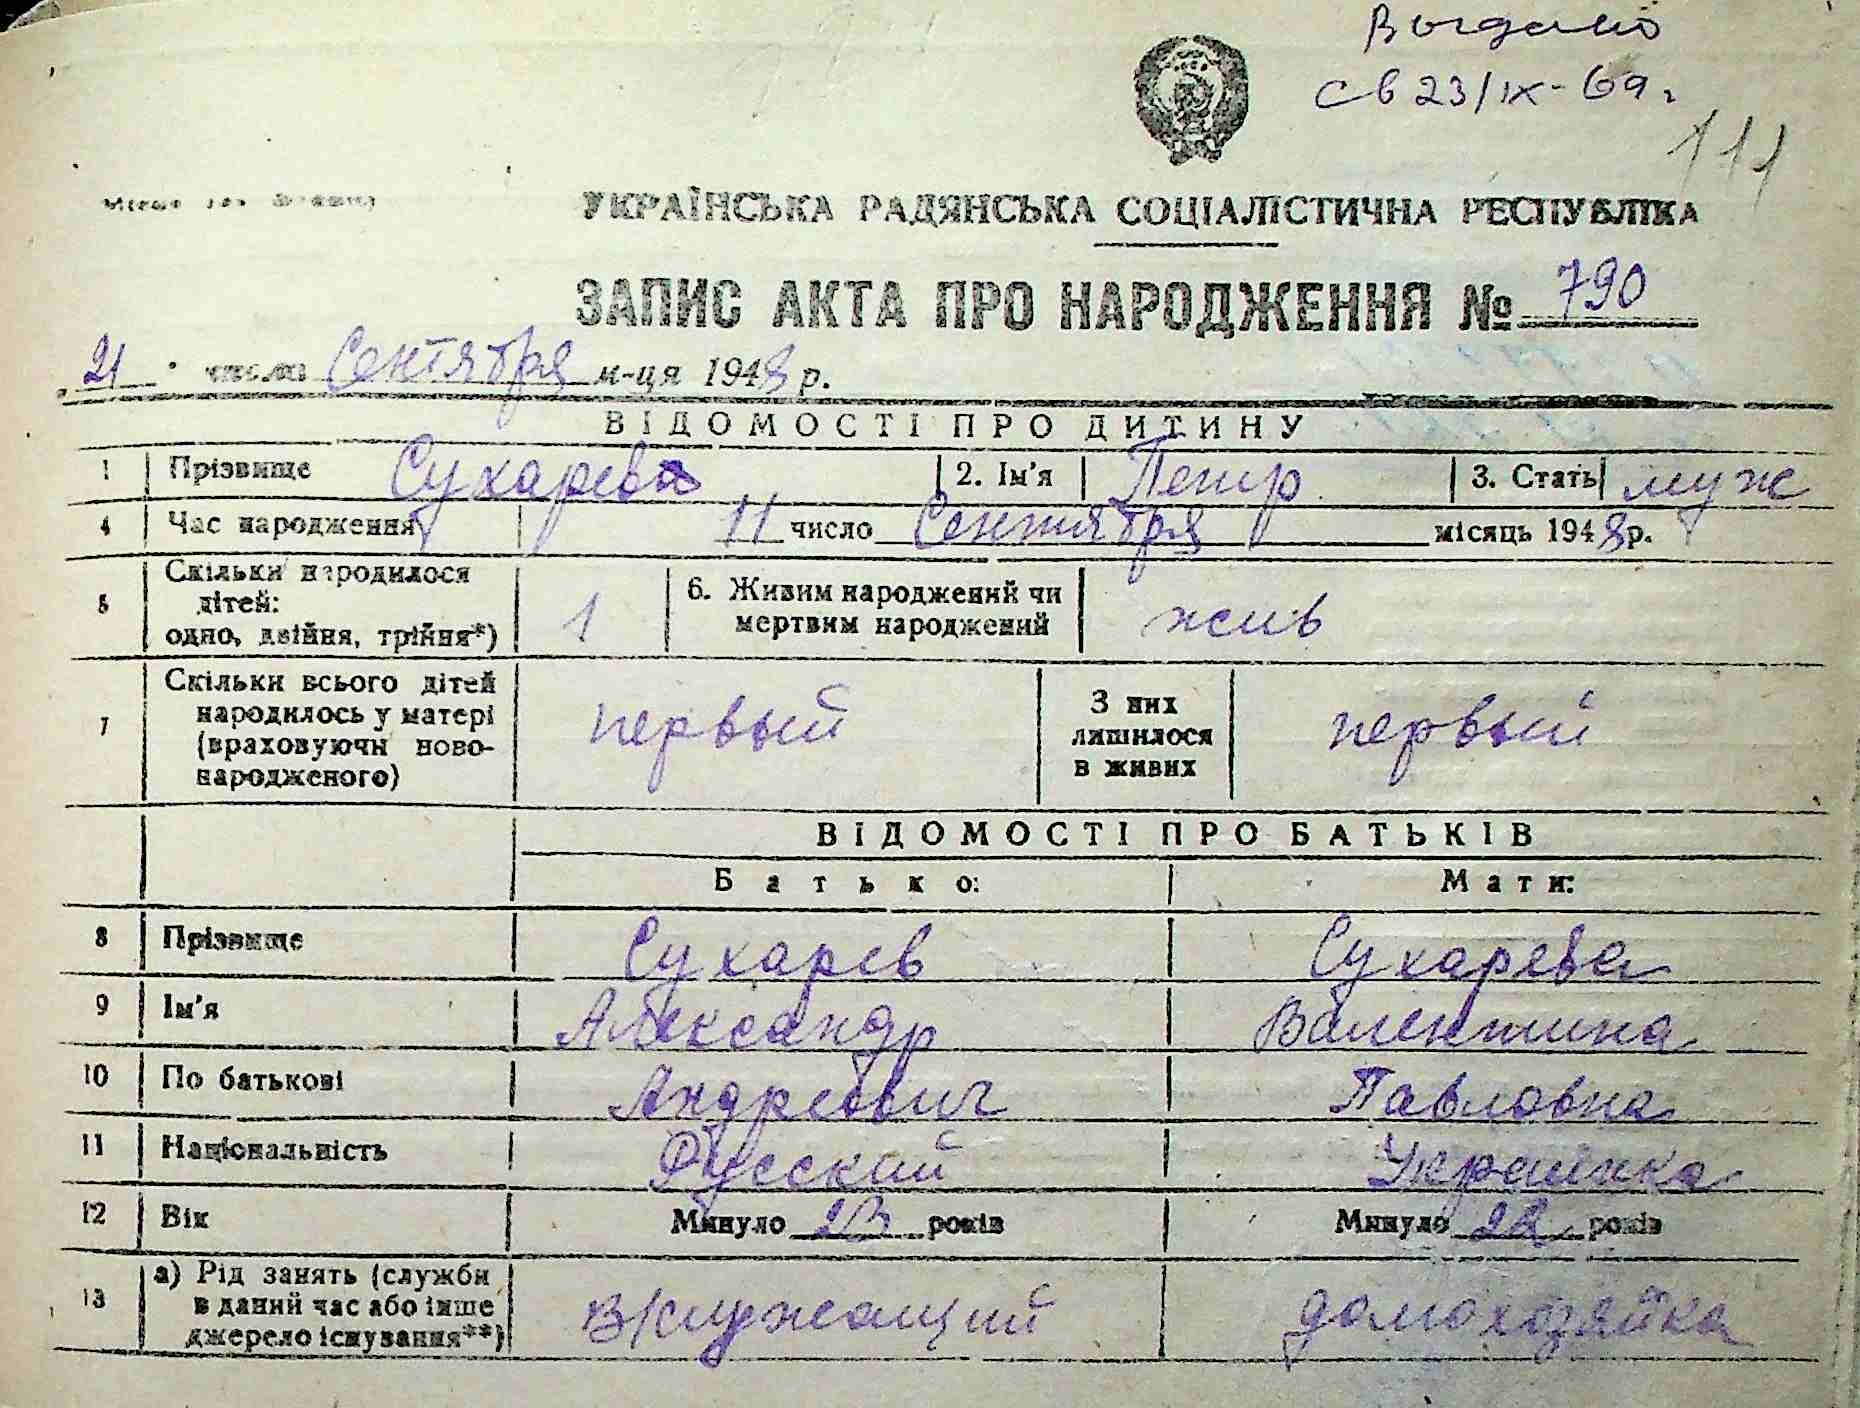 Выдано
св 23/IX-69 г
111
УКРАЇНСЬКА РАДЯНСЬКА СОЦІАЛІСТИЧНА РЕСПУБЛІКА
ЗАПИС АКТА ПРО НАРОДЖЕННЯ № 790
„21" числа Сентября м-ця 1948 р.
ВІДОМОСТІ ПРО ДИТИНУ
1 Прізвище Сухарев 2. Ім'я Петр 3. Стать муж
4 Час народження 11 число Сентября місяць 1948 р.
5 Скільки народилося дітей: одно, двійня, трійня*) 1 6. Живим народжений чи мертвим народжений жив
7 Скільки всього дітей народилось у матері (враховуючи новонародженого) первый З них лишилося в живих первый
ВІДОМОСТІ ПРО БАТЬКІВ
Батько: Мати:
8 Прізвище Сухарев Сухарева
9 Ім'я Александр Валентина
10 По батькові Андреевич Павловна
11 Національність Русский Украинка
12 Вік Минуло 23 років Минуло 22 років
13 а) Рід занять (служби в даний час або інше джерело існування**) В/служащий домохозяйка